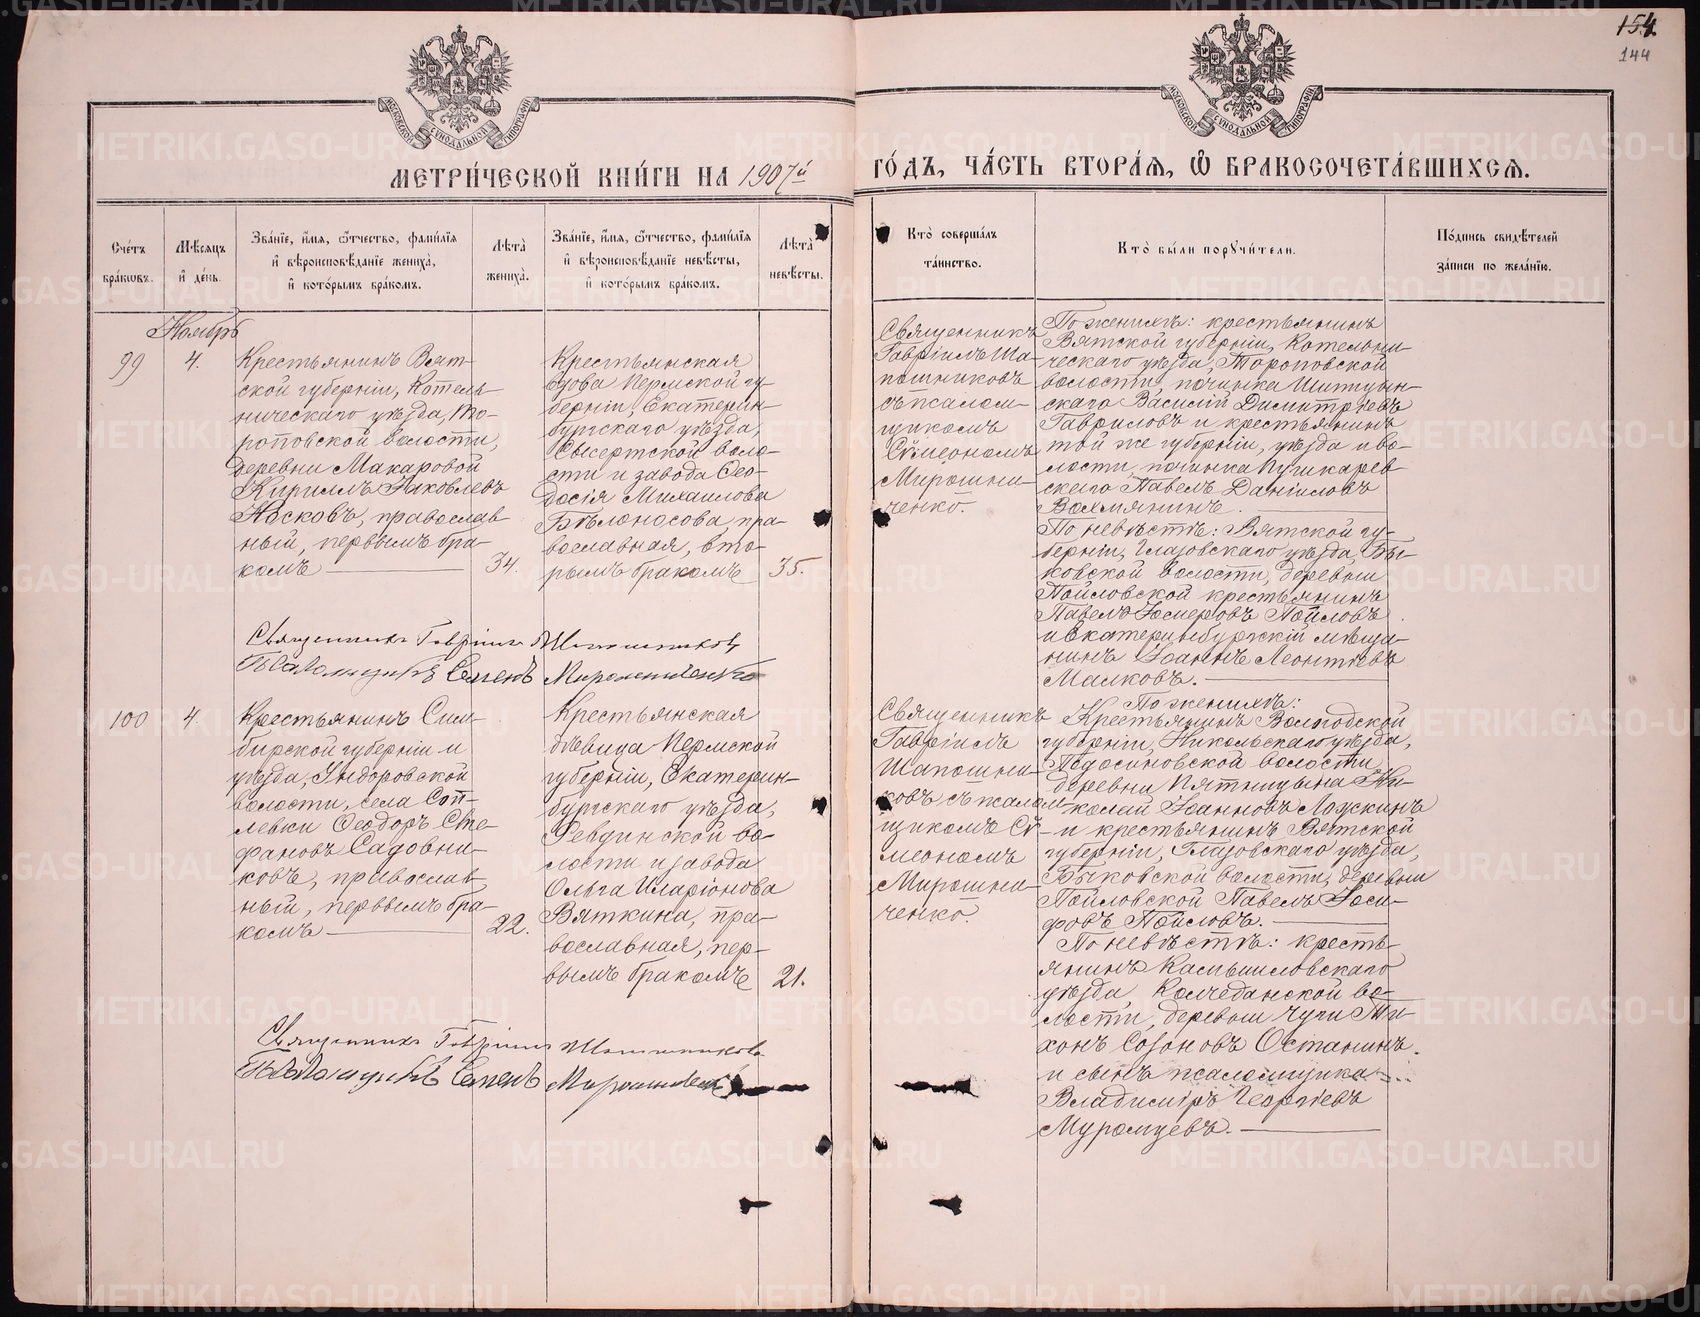 154
144
МОСКОВСКОЙ СѴНОДАЛЬНОЙ ТИПОГРАФІИ
МОСКОВСКОЙ СѴНОДАЛЬНОЙ ТИПОГРАФІИ
МЕТРИ́ЧЕСКОЙ КНИ́ГИ НА 1907й ГО́ДЪ, ЧА́СТЬ ВТОРА́Ѧ, Ѽ БРАКОСОЧЕТА́ВШИХСѦ.
Сче́тъ
бра́кѡвъ.
Мѣ́сѧцъ
и҆ де́нь.
Зва́нїе, и҆́мѧ, ѻ҆́тчество, фами́лїѧ
и҆ вѣроисповѣ́данїе жениха̀,
и҆ кото́рымъ бра́комъ.
Лѣ́та̀
жениха̀.
Зва́нїе, и҆́мѧ, ѻ҆́тчество, фами́лїѧ
и҆ вѣроисповѣ́данїе невѣ́сты,
и҆ кото́рымъ бра́комъ.
Лѣ́та̀
невѣ́сты.
Кто̀ соверша́лъ
та́инство.
Кто̀ бы́ли порꙋчи́тели.
По́дпись свидѣ́телей
за́писи по жела́нїю.
Ноябрь
99
4.
Крестьянинъ Вят-
ской губерніи, Котель-
ническаго уѣзда, То-
роповской волости,
деревни Макаровой
Кириллъ Іаковлевъ
Носковъ, православ-
ный, первымъ бра-
комъ
34.
Крестьянская
вдова Пермской гу-
берніи, Екатерин-
бургскаго уѣзда,
Сысертской воло-
сти и завода Ѳео-
досія Михаилова
Бѣлоносова, пра-
вославная, вто-
рымъ бракомъ
35.
Священникъ
Гавріилъ Ша-
пошниковъ
съ псалом-
щикомъ
Сѵмеономъ
Мирошни-
ченко.
По женихѣ: крестьянинъ
Вятской губерніи, Котельни-
ческаго уѣзда, Тороповской
волости, починка
скаго Василій Димитріевъ
Гавриловъ и крестьянинъ
той же губерніи, уѣзда и во-
лости, починка Пушкарев-
скаго Павелъ Даніиловъ
Вахмянинъ.
По невѣстѣ: Вятской гу-
берніи, Глазовскаго уѣзда, Бы-
ковской волости, деревни
Пойловской крестьянинъ
Павелъ Іосифовъ Пойловъ
и Екатеринбургскій мѣща-
нинъ Іоаннъ Леонтіевъ
Малковъ.
Священникъ Гавріилъ Шапошниковъ
Псаломщикъ Семенъ Мирошниченко
100
4.
Крестьянинъ Сим-
бирской губерніи и
уѣзда, Ундоровской
волости, села Соп-
левки Ѳеодоръ Сте-
фановъ Садовни-
ковъ, православ-
ный, первымъ бра-
комъ
22.
Крестьянская
дѣвица Пермской
губерніи, Екатерин-
бургскаго уѣзда,
Ревдинской во-
лости и завода
Ольга Иларіонова
Вяткина, пра-
вославная, пер-
вымъ бракомъ
21.
Священникъ
Гавріилъ
Шапошни-
ковъ съ псалом-
щикомъ Сѵ-
меономъ
Мирошни-
ченко.
По женихѣ:
Крестьянинъ Вологодской
губерніи, Никольскаго уѣзда,
Подосиновской волости,
деревни Пятницына Ни-
колай Іоанновъ Лоускинъ
и крестьянинъ Вятской
губерніи, Глазовскаго уѣзда,
Быковской волости, деревни
Пойловской Павелъ Іоси-
фовъ Пойловъ.
По невѣстѣ: кресть-
янинъ Камышловскаго
уѣзда, Колчеданской во-
лости, деревни Чуги Ти-
хонъ Созоновъ Останинъ
и сынъ псаломщика
Владиміръ Георгіевъ
Муромцевъ.
Священникъ Гавріилъ Шапошниковъ
Псаломщикъ Семенъ Мирошниченко
METRIKI.GASO-URAL.RU